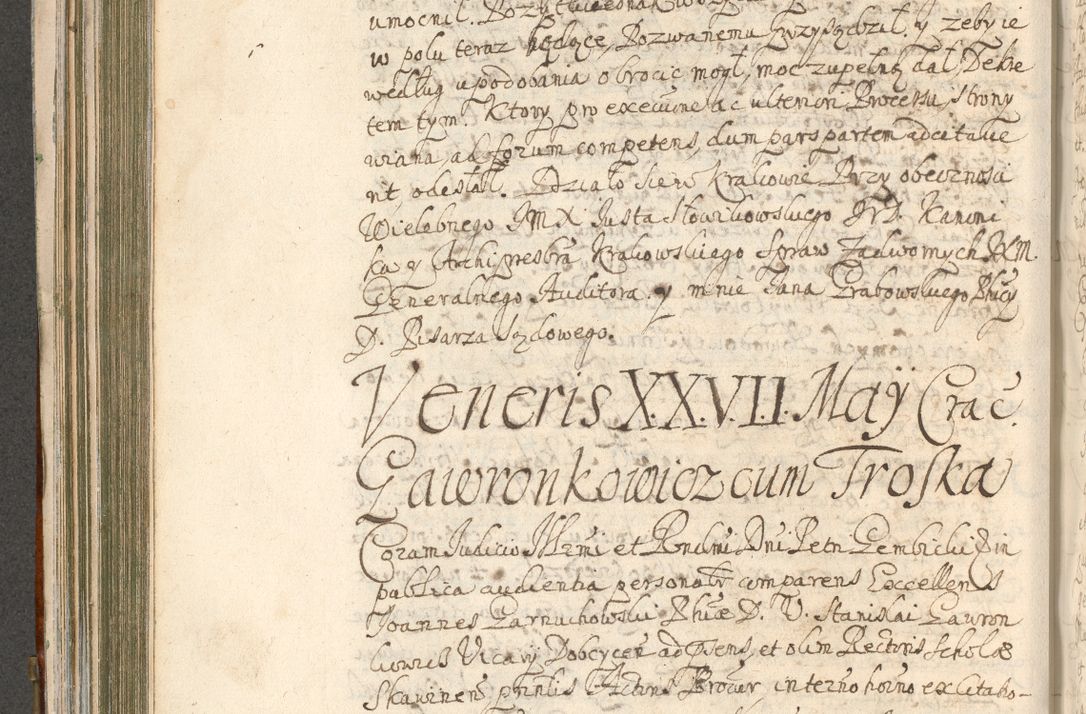 w polu teraz będące, Pozwanemu przysądził, y zeby ie
według upodobania obrocic mogł, moc zupełną dał, Dekre
tem tym. Ktory pro executione ac ulteriori Processu, strony
wiana, ad forum competens, dum pars partem ad citatie
nt, odesłał. Działo sie w Krakowie Przy obecznosci
Wielebnego JMX Justa Słowikowskiego JVD. Kanoni
ka y Archipresbra Krakowskiego Spraw Zadwornych JKM.
Generalnego Auditora. y mnie Jana Grabowskiego Phiæ
D. Pisarza Sądowego.
Veneris XXVII. Maÿ Crac.
Gawronkowicz cum Troska
Coram Judicio Illmi et Rendmi Dni Petri Gembicki Ep in
publica audientia personalr comparens Excellens
Joannes Garnuchowski Phiæ D. V. Stanislai Gawron
kionis Vicarÿ Dobcycen ad psens, et olim Rectoris Scholæ
Skawinens, prinlis Actoris Procur in terno horno ex citaõ-